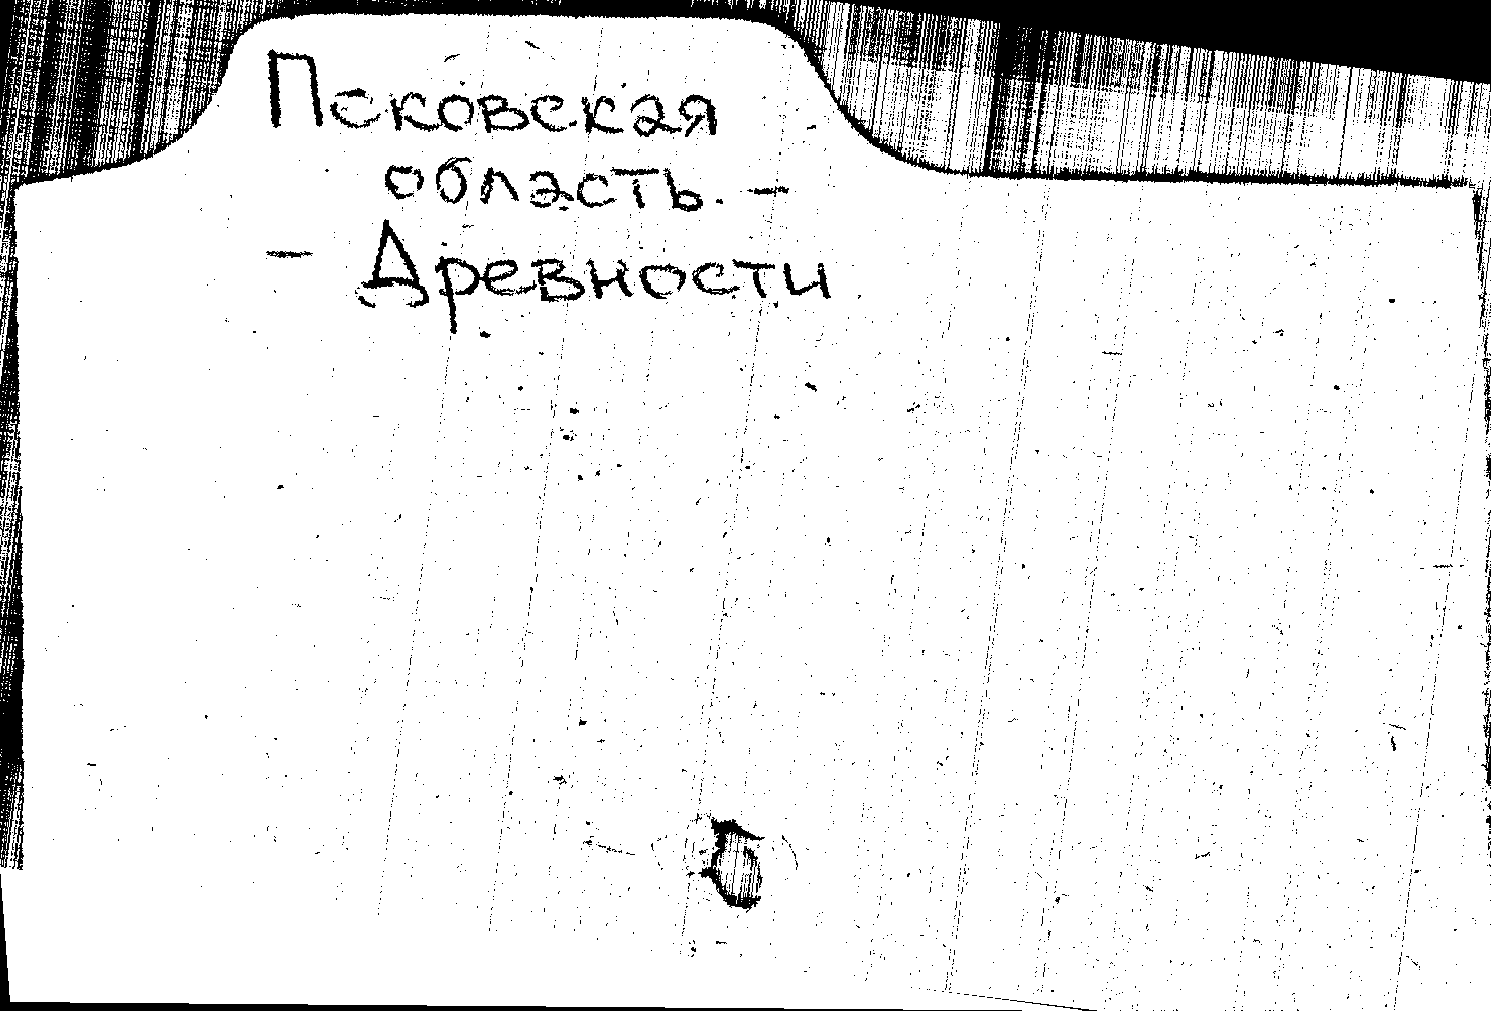 Псковская
область. -
- Древности